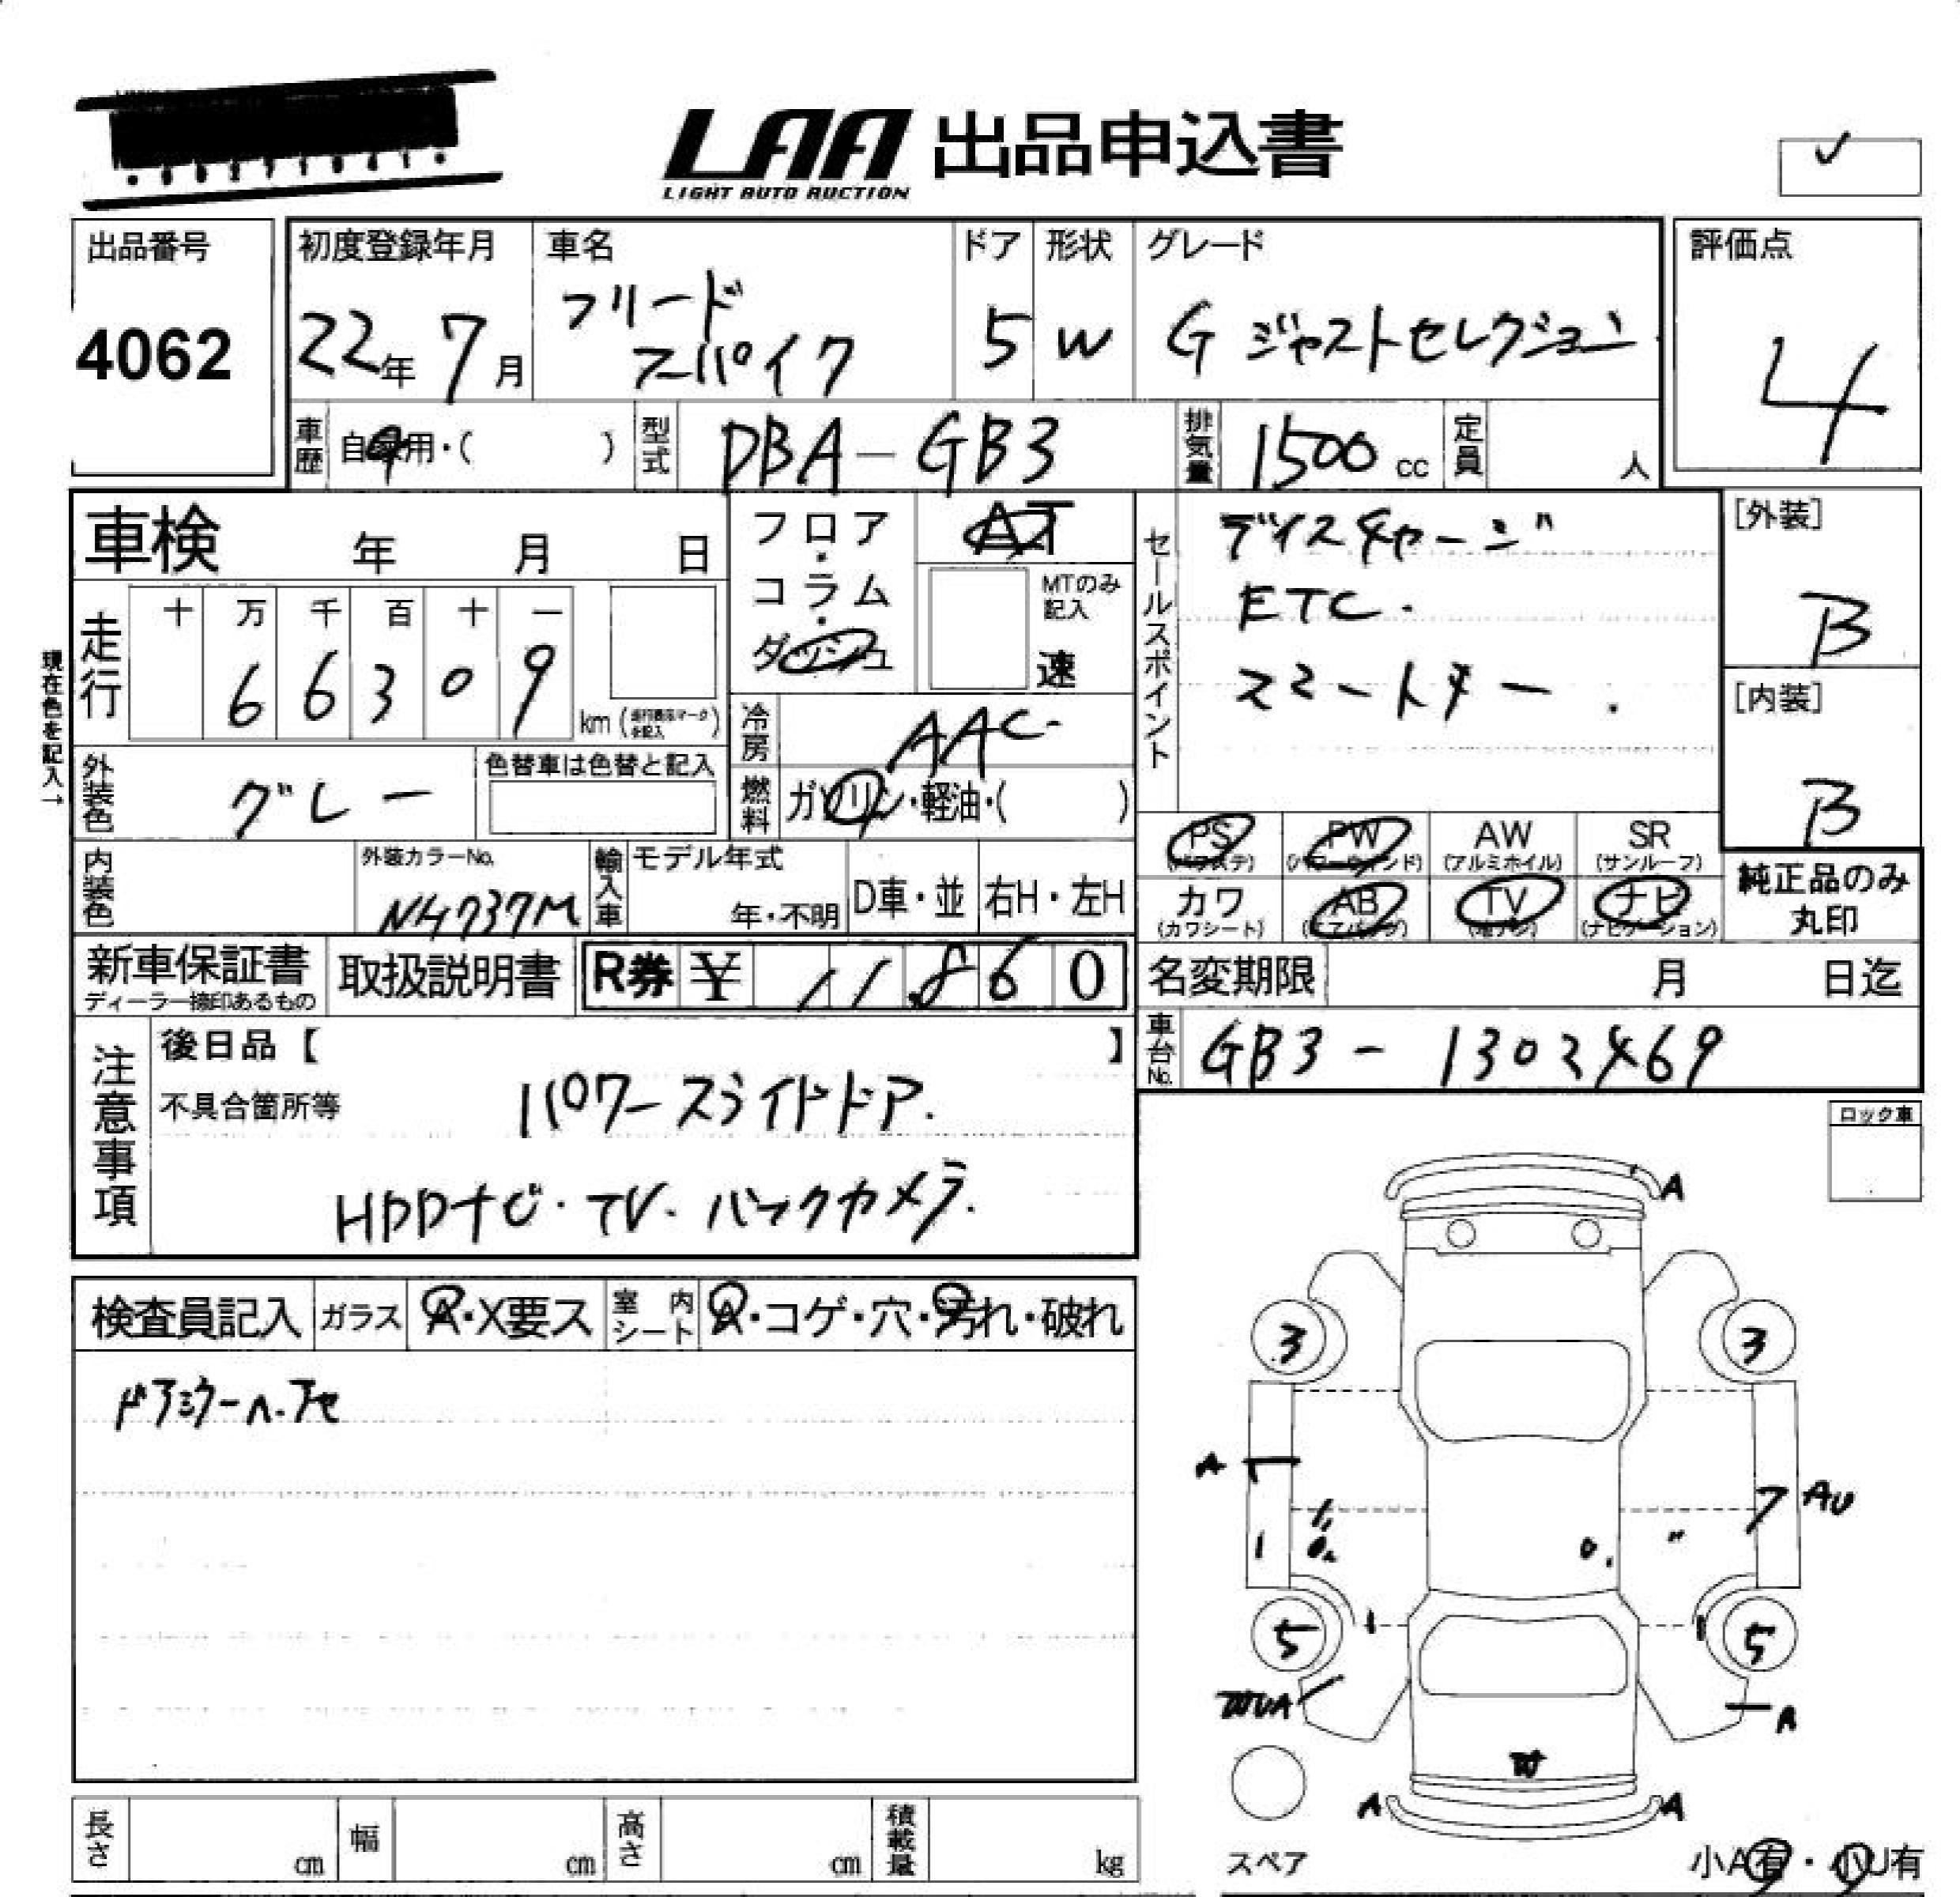 LAA 出品申込書
LIGHT AUTO AUCTION
✓
出品番号
4062
初度登録年月
22年 7月
車名
フリード
スパイク
ドア
5
形状
W
グレード
G ジャストセレクション
評価点
4
車歴 自家用・( )
型式 DBA-GB3
排気量 1500 cc
定員 人
車検 年 月 日
フロア・コラム・ダッシュ
AT
MTのみ記入
速
走行
十 万 千 百 十 一
6 6 3 0 9
km
現在色を記入→
冷房 AAC
燃料 ガソリン・軽油・( )
外装色 グレー
色替車は色替と記入
内装色
外装カラーNo.
NH737M
輸入車
モデル年式
年・不明
D車・並
右H・左H
セールスポイント
ディスチャージ
ETC.
スマートキー.
[外装]
B
[内装]
B
PS (パワステ)
PW (パワーウィンド)
AW (アルミホイル)
SR (サンルーフ)
カワ (カワシート)
AB (エアバッグ)
TV (地デジ)
ナビ (ナビゲーション)
純正品のみ
丸印
新車保証書
ディーラー捺印あるもの
取扱説明書
R券 ¥ 11,860
名変期限 月 日迄
車台No. GB3-1302469
注意事項
後日品【 】
不具合箇所等
パワースライドドア.
HDDナビ・TV・バックカメラ.
ロック車
検査員記入
ガラス A・X要ス
室内シート A・コゲ・穴・汚れ・破れ
A
3
3
A
7 AU
1
0.
〃
5
5
1
1
A
A
A
長さ cm
幅 cm
高さ cm
積載量 kg
スペア
小A有・小U有